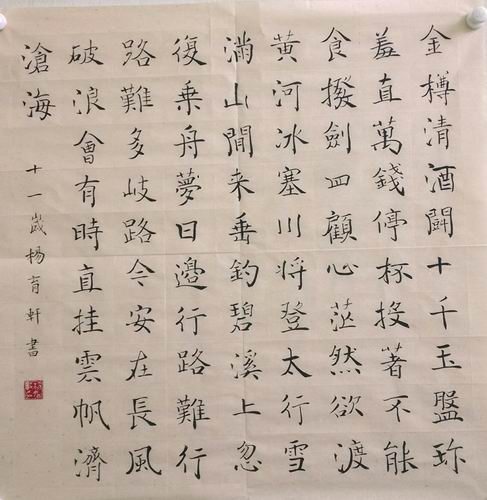 金樽清酒鬪十千玉盤珎
羞直萬錢停杯投著不能
食撥劍四顧心茫然欲渡
黃河冰塞川將登太行雪
滿山閒来垂釣碧溪上忽
復乗舟夢日邊行路難行
路難多岐路今安在長風
破浪會有時直挂雲帆濟
滄海
十一歲楊育軒書